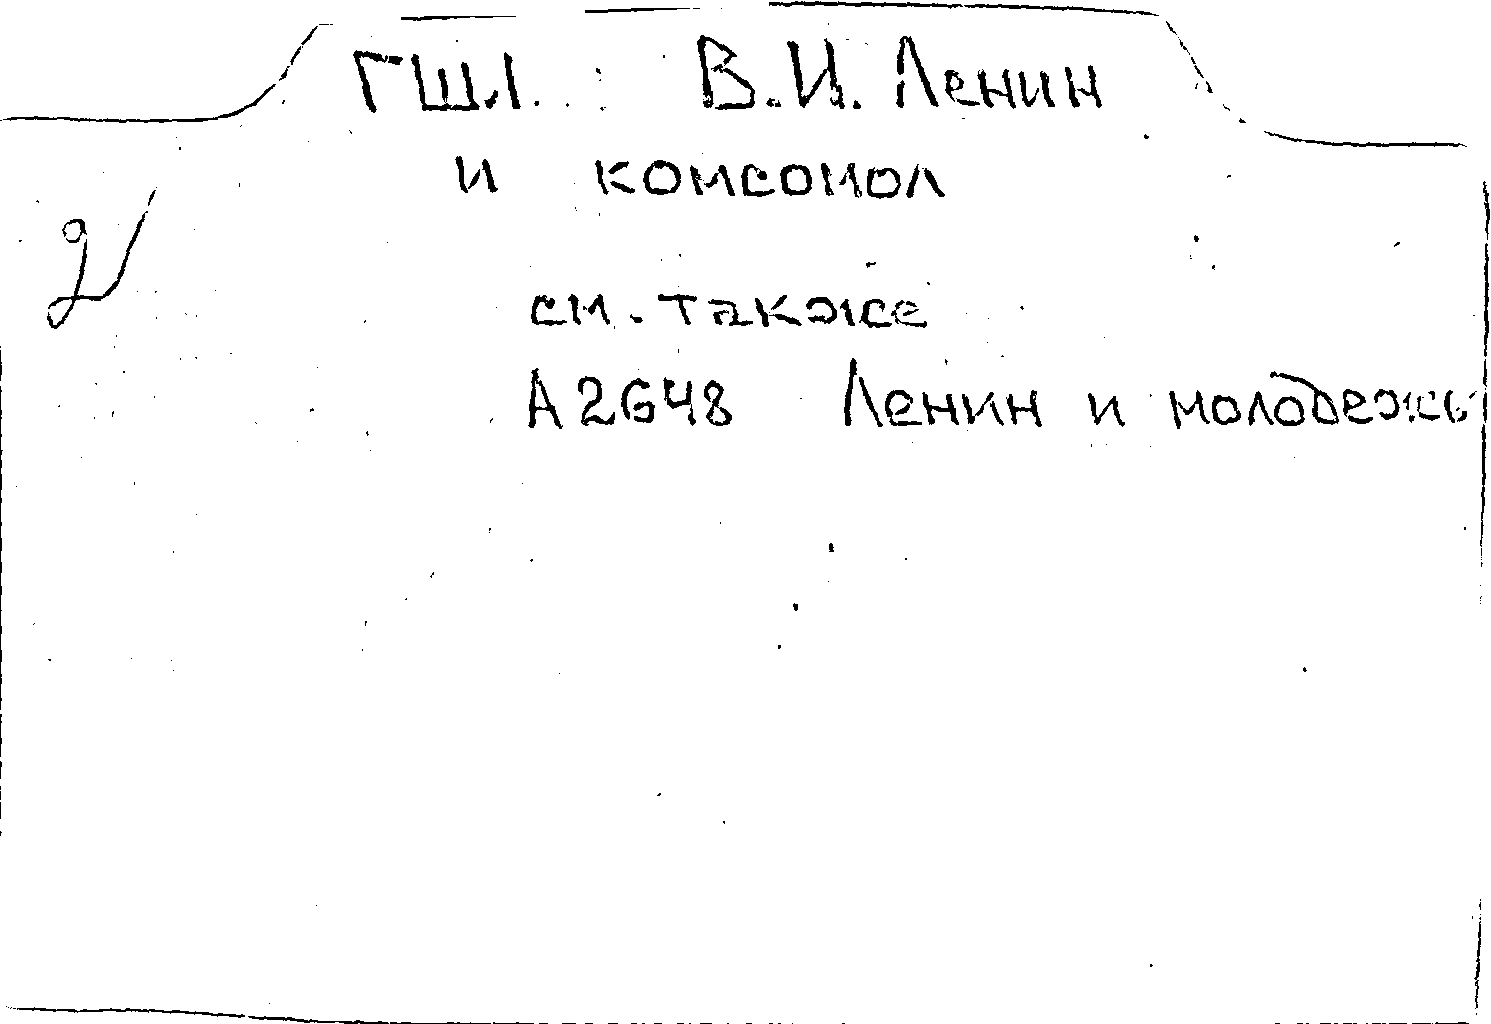 ГШ1. В.И. Ленин
и комсомол
см. также
А2G48 Ленин и молодежь